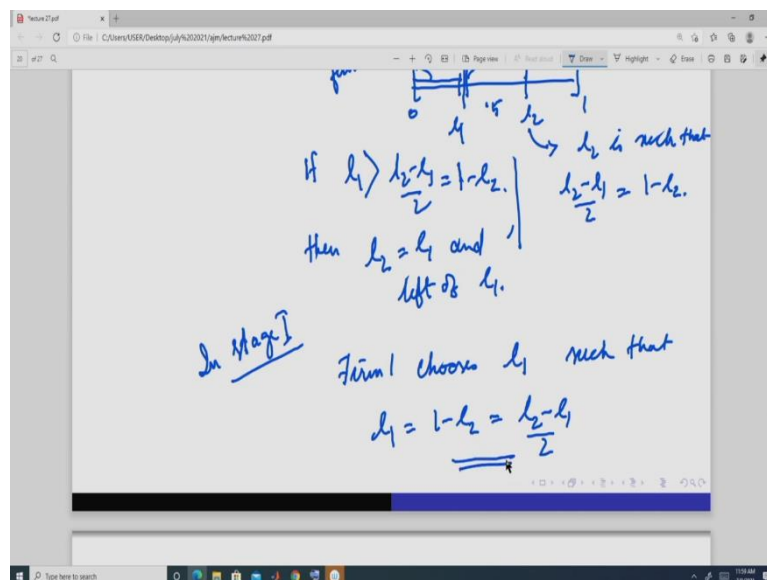 *lecture 27.pdf
File | C:/Users/USER/Desktop/july%202021/ajm/lecture%2027.pdf
of 27
Page view
Read aloud
Draw
Highlight
Erase
0 l₁ .5 l₂ 1
l₂ is such that
(l₂-l₁)/2 = 1-l₂.
If l₁ > (l₂-l₁)/2 = 1-l₂.
then l₂ = l₁ and
left of l₁.
In stage I
Firm 1 chooses l₁ such that
l₁ = 1-l₂ = (l₂-l₁)/2
Type here to search
11:59 AM